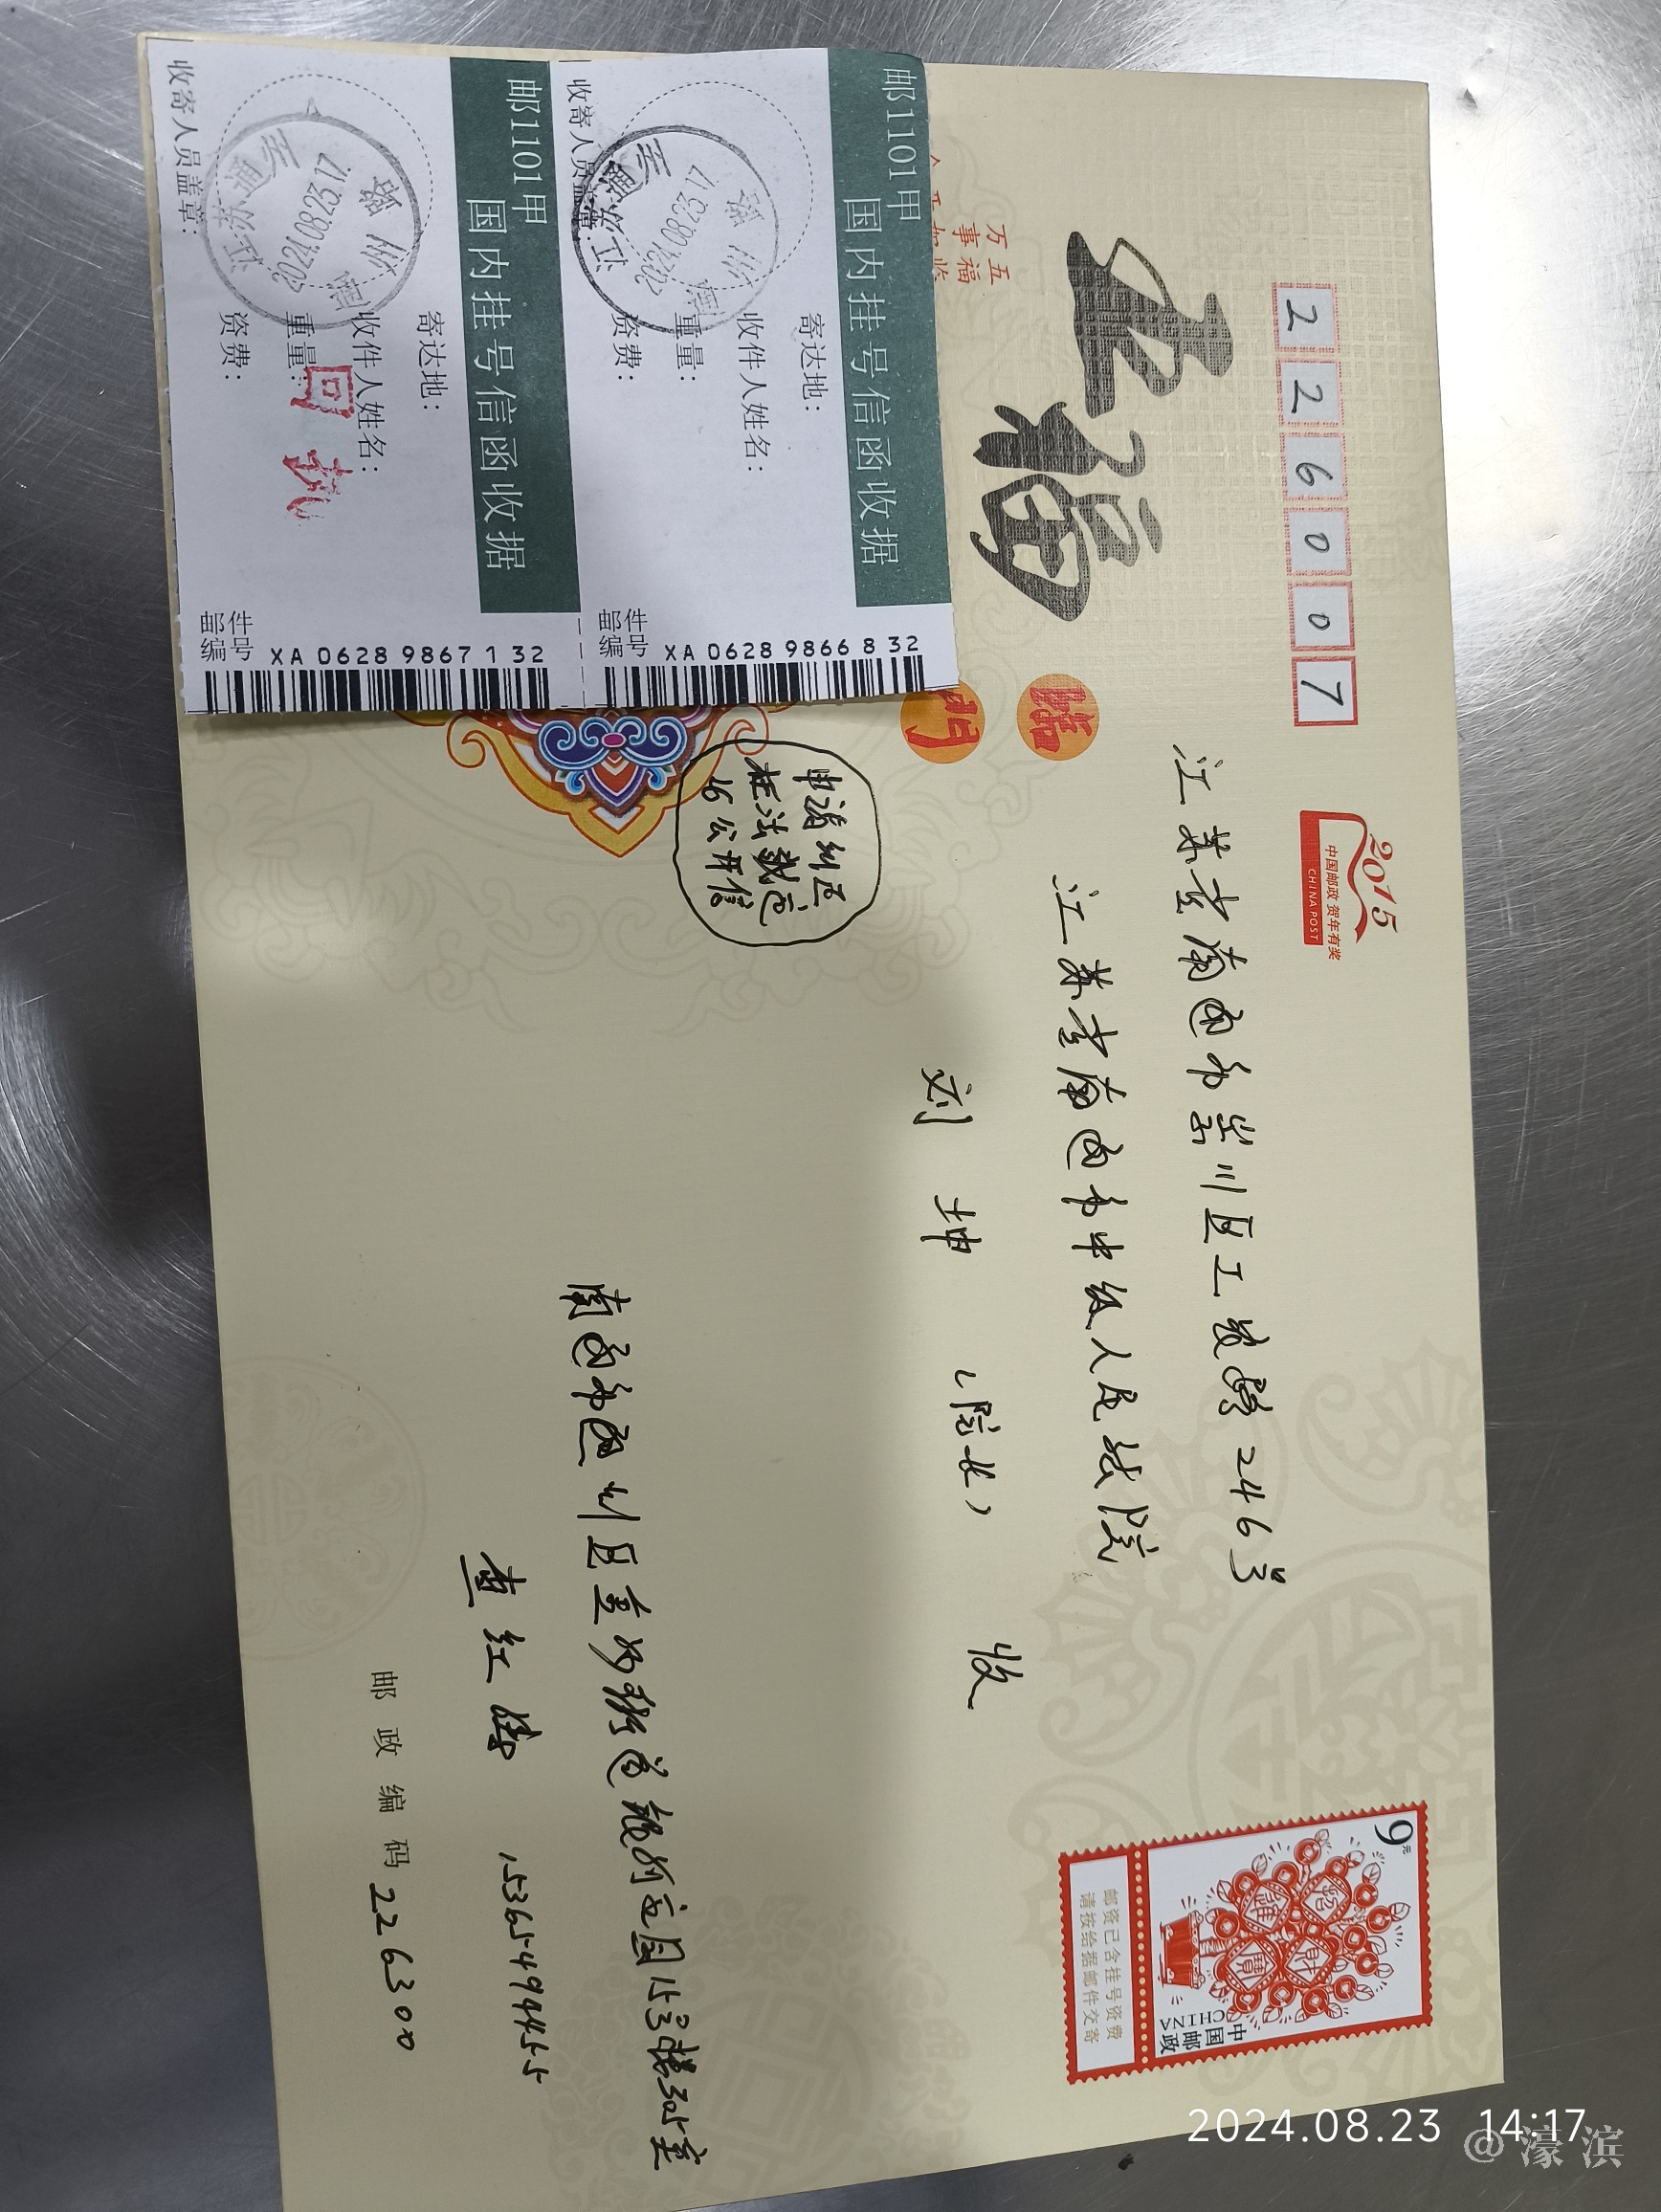 226007
2015
中国邮政 贺年有奖
CHINA POST
江苏省南通市崇川区工农路246号
江苏省南通市中级人民法院
刘坤（院长） 收
五福
臨
門
五福临
万事如
申请纠正
枉法裁定
16公开信
南通市通州区金沙街道银河
15号楼305室
查红 15365499455
邮政编码226300
9元
中国邮政
CHINA
招財
進寶
邮资已含挂号资费
请按给据邮件交寄
邮1101甲
国内挂号信函收据
寄达地:
收件人姓名:
重量:
资费:
收寄人员盖章:
邮件
编号 XA 0628 9866 8 32
邮1101甲
国内挂号信函收据
寄达地:
收件人姓名:
重量:
资费:
收寄人员盖章:
回执
邮件
编号 XA 0628 9867 1 32
2024.08.23 14:17
@濠滨